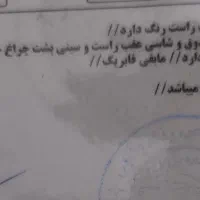 راست رنگ دارد//
وق و شاسی عقب راست و سینی پشت چراغ
دارد// مابقی فابریک//
میباشد//